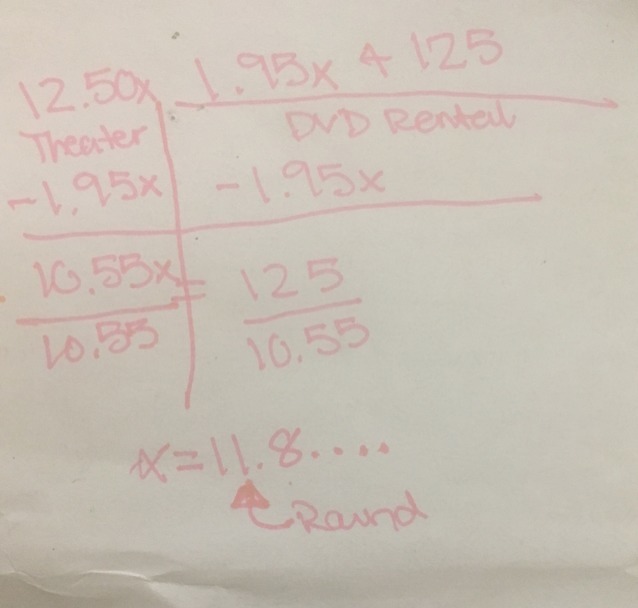 12.50x 1.95x + 125
Theater DVD Rental
-1.95x -1.95x
10.55x = 125
10.55 10.55
x = 11.8....
Round